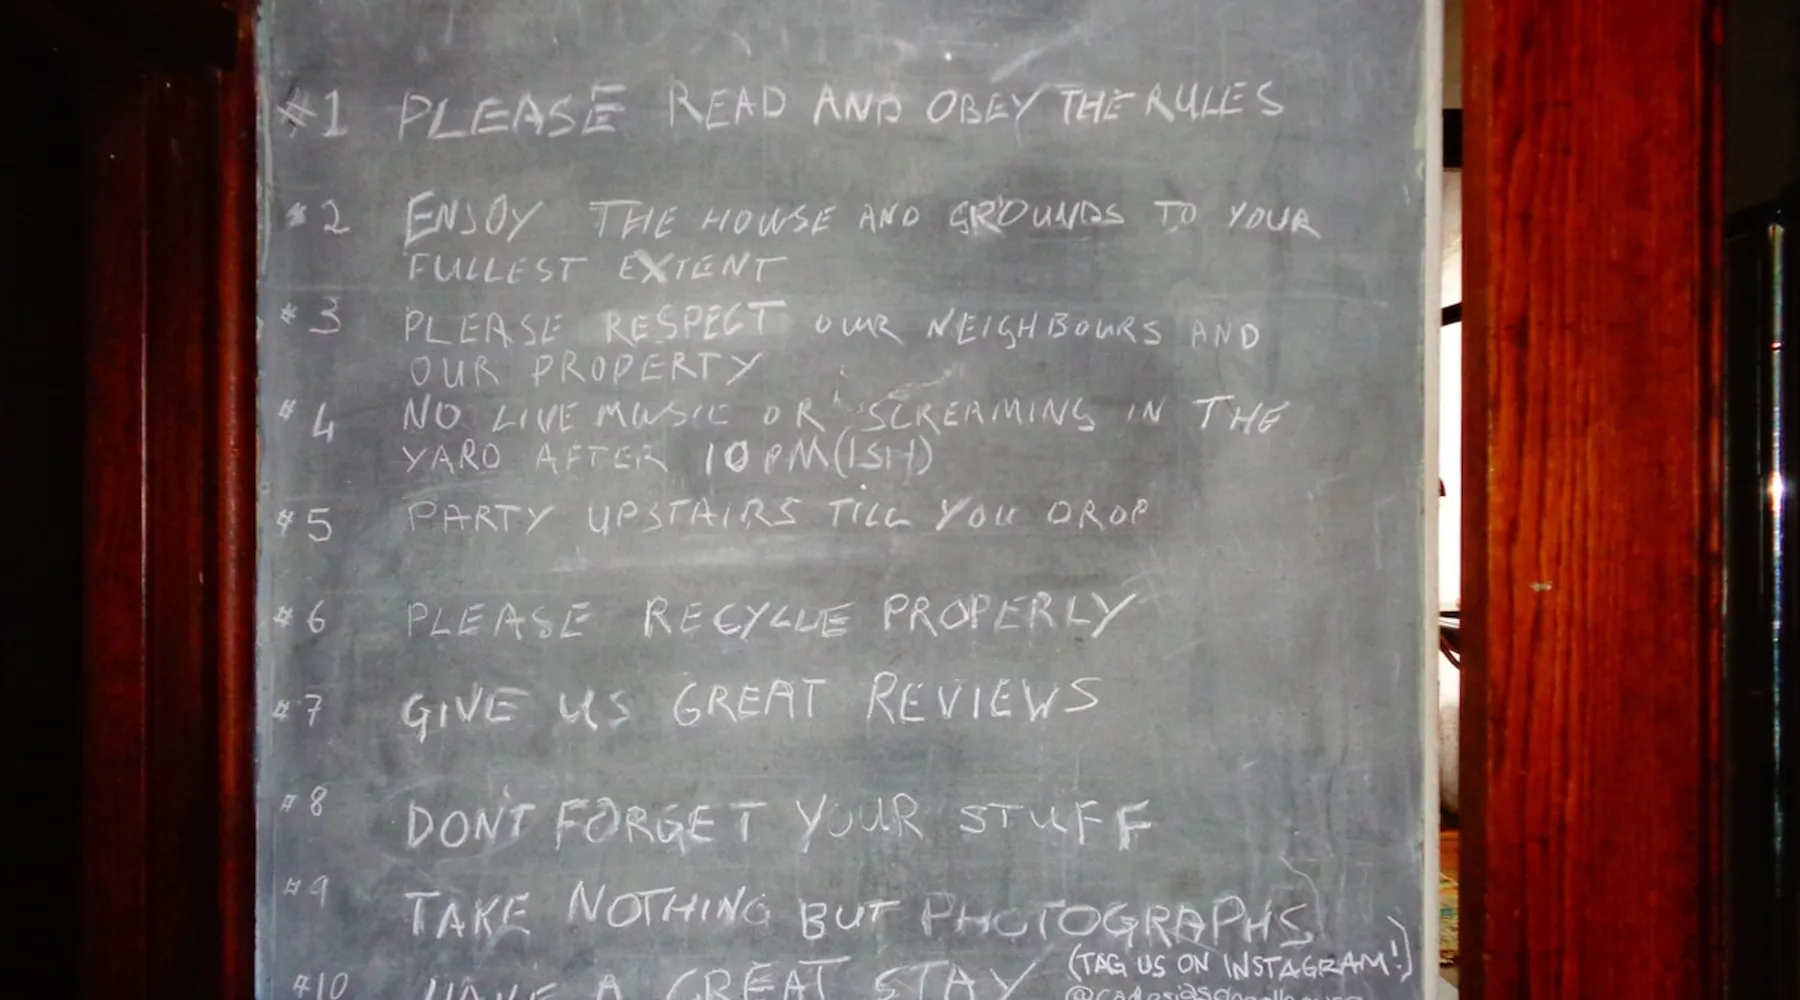 #1 PLEASE READ AND OBEY THE RULES
#2 ENJOY THE HOUSE AND GROUNDS TO YOUR
FULLEST EXTENT
#3 PLEASE RESPECT OUR NEIGHBOURS AND
OUR PROPERTY
#4 NO LIVE MUSIC OR SCREAMING IN THE
YARD AFTER 10PM(ISH)
#5 PARTY UPSTAIRS TILL YOU DROP
#6 PLEASE RECYCLE PROPERLY
#7 GIVE US GREAT REVIEWS
#8 DON'T FORGET YOUR STUFF
#9 TAKE NOTHING BUT PHOTOGRAPHS
(TAG US ON INSTAGRAM!)
#10 HAVE A GREAT STAY